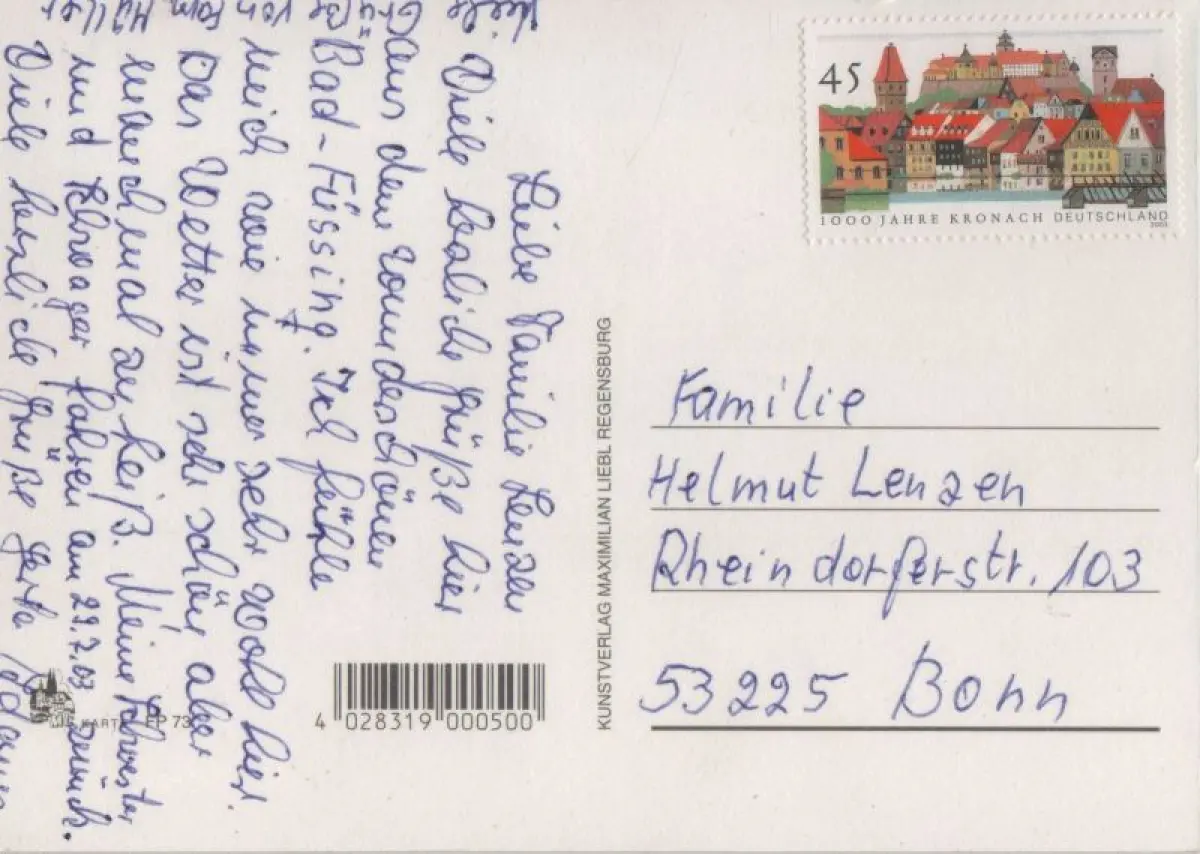 Liebe Familie Lenzen
Viele herzliche Grüße hier
aus dem wunderschönen
Bad-Füssing. Ich fühle
mich wie immer sehr wohl hier.
Das Wetter ist sehr schön aber
manchmal zu heiß. Meine Schwester
und Schwager fahren am 29.7.03 zurück.
Viele herzliche Grüße Gerta
Viele
Grüße
von
Fam
Müller
45
1000 JAHRE KRONACH DEUTSCHLAND
2003
KUNSTVERLAG MAXIMILIAN LIEBL REGENSBURG
Familie
Helmut Lenzen
Rheindorferstr. 103
53225 Bonn
4 028319 000500